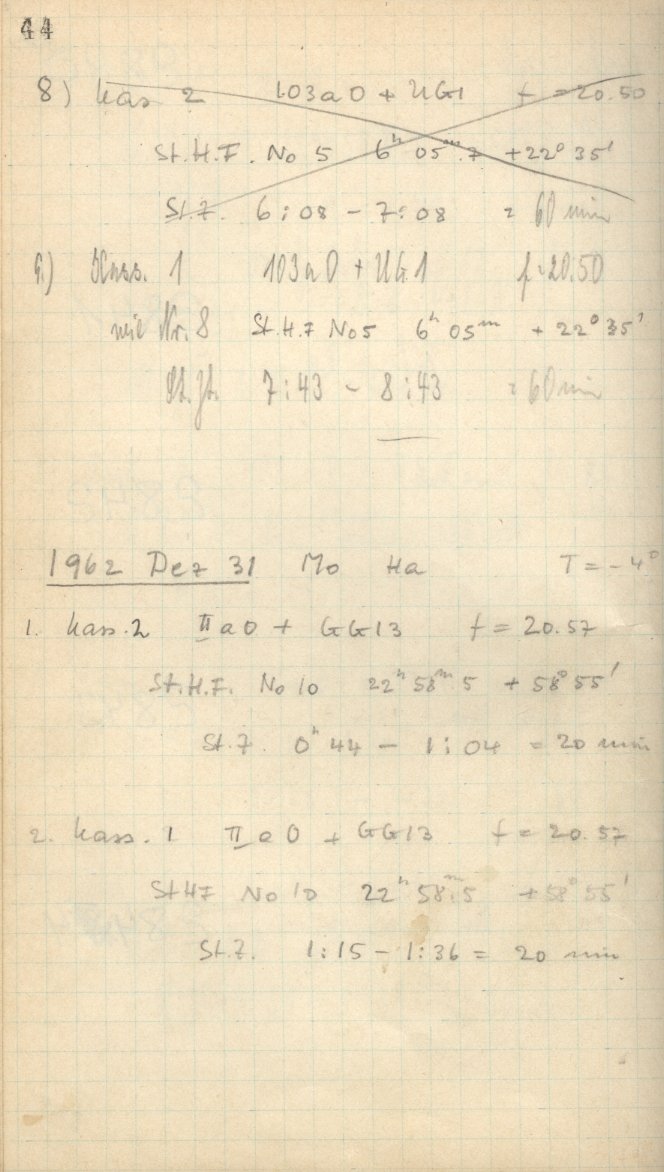 44
8) Kas 2 103a0 + UG1 f = 20.50
St.H.F. No 5 6h 05m.7 +22° 35'
St.Z. 6:08 - 7:08 = 60 min
9.) Kass. 1 103a0 + UG1 f=20.50
wie Nr. 8 St.H.F No5 6h 05m + 22° 35'
St.Zt. 7:43 - 8:43 = 60 min
1962 Dez 31 Mo Ha T = -4°
1. Kass. 2 IIa0 + GG13 f = 20.57
St.H.F. No 10 22h 58m.5 + 58° 55'
St.Z. 0h 44 - 1:04 = 20 min
2. Kass. 1 IIa0 + GG13 f = 20.57
StHF No 10 22h 58m.5 +58° 55'
St.Z. 1:15 - 1:36 = 20 min